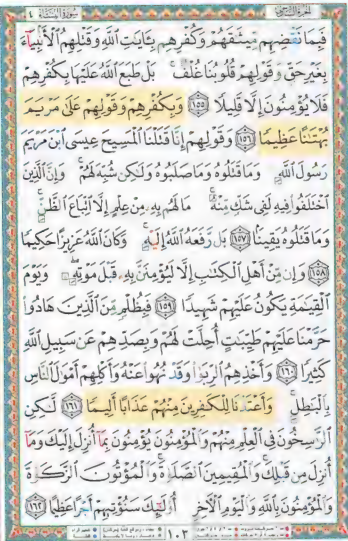 الجزء السادس سورة النساء ٤
فَبِمَا نَقْضِهِم مِّيثَٰقَهُمْ وَكُفْرِهِم بِـَٔايَٰتِ ٱللَّهِ وَقَتْلِهِمُ ٱلْأَنۢبِيَآءَ
بِغَيْرِ حَقٍّ وَقَوْلِهِمْ قُلُوبُنَا غُلْفٌۢ بَلْ طَبَعَ ٱللَّهُ عَلَيْهَا بِكُفْرِهِمْ
فَلَا يُؤْمِنُونَ إِلَّا قَلِيلًا ١٥٥ وَبِكُفْرِهِمْ وَقَوْلِهِمْ عَلَىٰ مَرْيَمَ
بُهْتَٰنًا عَظِيمًا ١٥٦ وَقَوْلِهِمْ إِنَّا قَتَلْنَا ٱلْمَسِيحَ عِيسَى ٱبْنَ مَرْيَمَ
رَسُولَ ٱللَّهِ وَمَا قَتَلُوهُ وَمَا صَلَبُوهُ وَلَٰكِن شُبِّهَ لَهُمْ ۚ وَإِنَّ ٱلَّذِينَ
ٱخْتَلَفُوا۟ فِيهِ لَفِى شَكٍّ مِّنْهُ ۚ مَا لَهُم بِهِۦ مِنْ عِلْمٍ إِلَّا ٱتِّبَاعَ ٱلظَّنِّ ۚ
وَمَا قَتَلُوهُ يَقِينًۢا ١٥٧ بَل رَّفَعَهُ ٱللَّهُ إِلَيْهِ ۚ وَكَانَ ٱللَّهُ عَزِيزًا حَكِيمًا
١٥٨ وَإِن مِّنْ أَهْلِ ٱلْكِتَٰبِ إِلَّا لَيُؤْمِنَنَّ بِهِۦ قَبْلَ مَوْتِهِۦ ۖ وَيَوْمَ
ٱلْقِيَٰمَةِ يَكُونُ عَلَيْهِمْ شَهِيدًا ١٥٩ فَبِظُلْمٍ مِّنَ ٱلَّذِينَ هَادُوا۟
حَرَّمْنَا عَلَيْهِمْ طَيِّبَٰتٍ أُحِلَّتْ لَهُمْ وَبِصَدِّهِمْ عَن سَبِيلِ ٱللَّهِ
كَثِيرًا ١٦٠ وَأَخْذِهِمُ ٱلرِّبَوٰا۟ وَقَدْ نُهُوا۟ عَنْهُ وَأَكْلِهِمْ أَمْوَٰلَ ٱلنَّاسِ
بِٱلْبَٰطِلِ ۚ وَأَعْتَدْنَا لِلْكَٰفِرِينَ مِنْهُمْ عَذَابًا أَلِيمًا ١٦١ لَّٰكِنِ
ٱلرَّٰسِخُونَ فِى ٱلْعِلْمِ مِنْهُمْ وَٱلْمُؤْمِنُونَ يُؤْمِنُونَ بِمَآ أُنزِلَ إِلَيْكَ وَمَآ
أُنزِلَ مِن قَبْلِكَ ۚ وَٱلْمُقِيمِينَ ٱلصَّلَوٰةَ ۚ وَٱلْمُؤْتُونَ ٱلزَّكَوٰةَ
وَٱلْمُؤْمِنُونَ بِٱللَّهِ وَٱلْيَوْمِ ٱلْـَٔاخِرِ أُو۟لَٰٓئِكَ سَنُؤْتِيهِمْ أَجْرًا عَظِيمًا ١٦٢
١٠٣